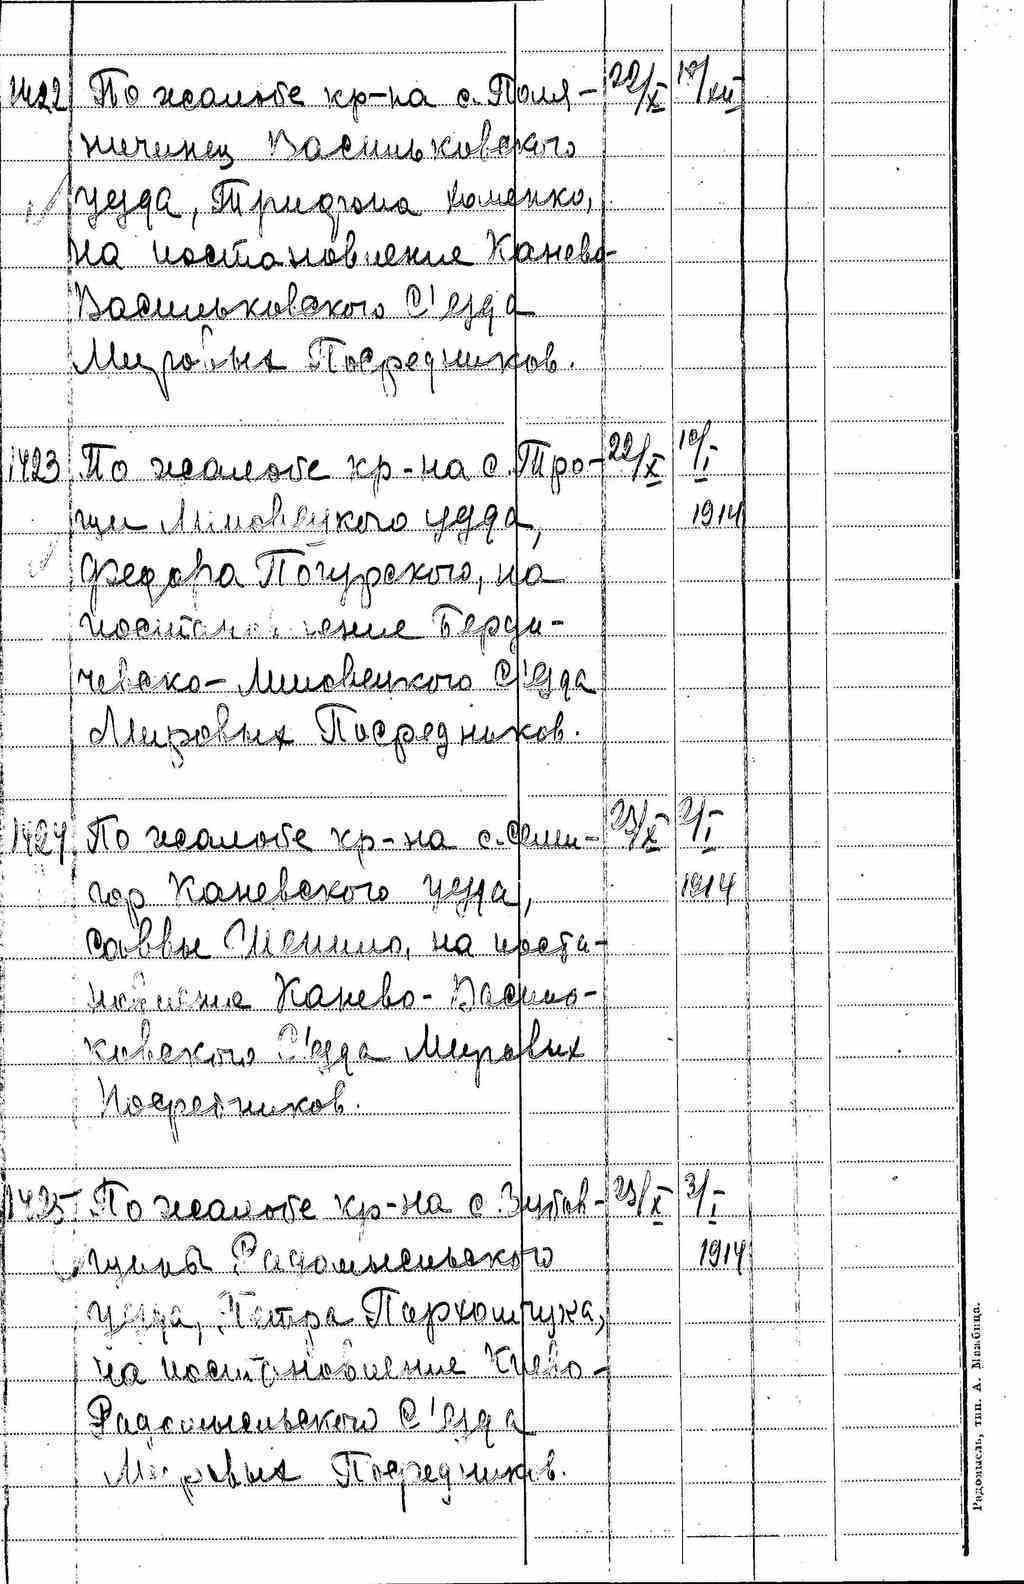 1422 По жалобе кр-на с. Поля- 22/X 10/XII
ничинец Васильковского
уезда, Трифона Хоменко,
на постановление Канево-
Васильковского С'езда
Мировых Посредников.
1423 По жалобе кр-на с. Тро- 22/X 10/I
щи Липовецкого уезда, 1914
Федора Погурского, на
постановление Берди-
чевско-Липовецкого С'езда
Мировых Посредников.
1424 По жалобе кр-на с. Семи- 23/X 2/I
гор Каневского уезда, 1914
Саввы на поста-
новление Канево-Василь-
ковского С'езда Мировых
Посредников.
1425 По жалобе кр-на с. 23/X 3/I
Радомысльского 1914
уезда, Петра Пархомчука,
на постановление Киево-
Радомысльского С'езда
Мировых Посредников.
Радомысль, тип. А. Мажбица.